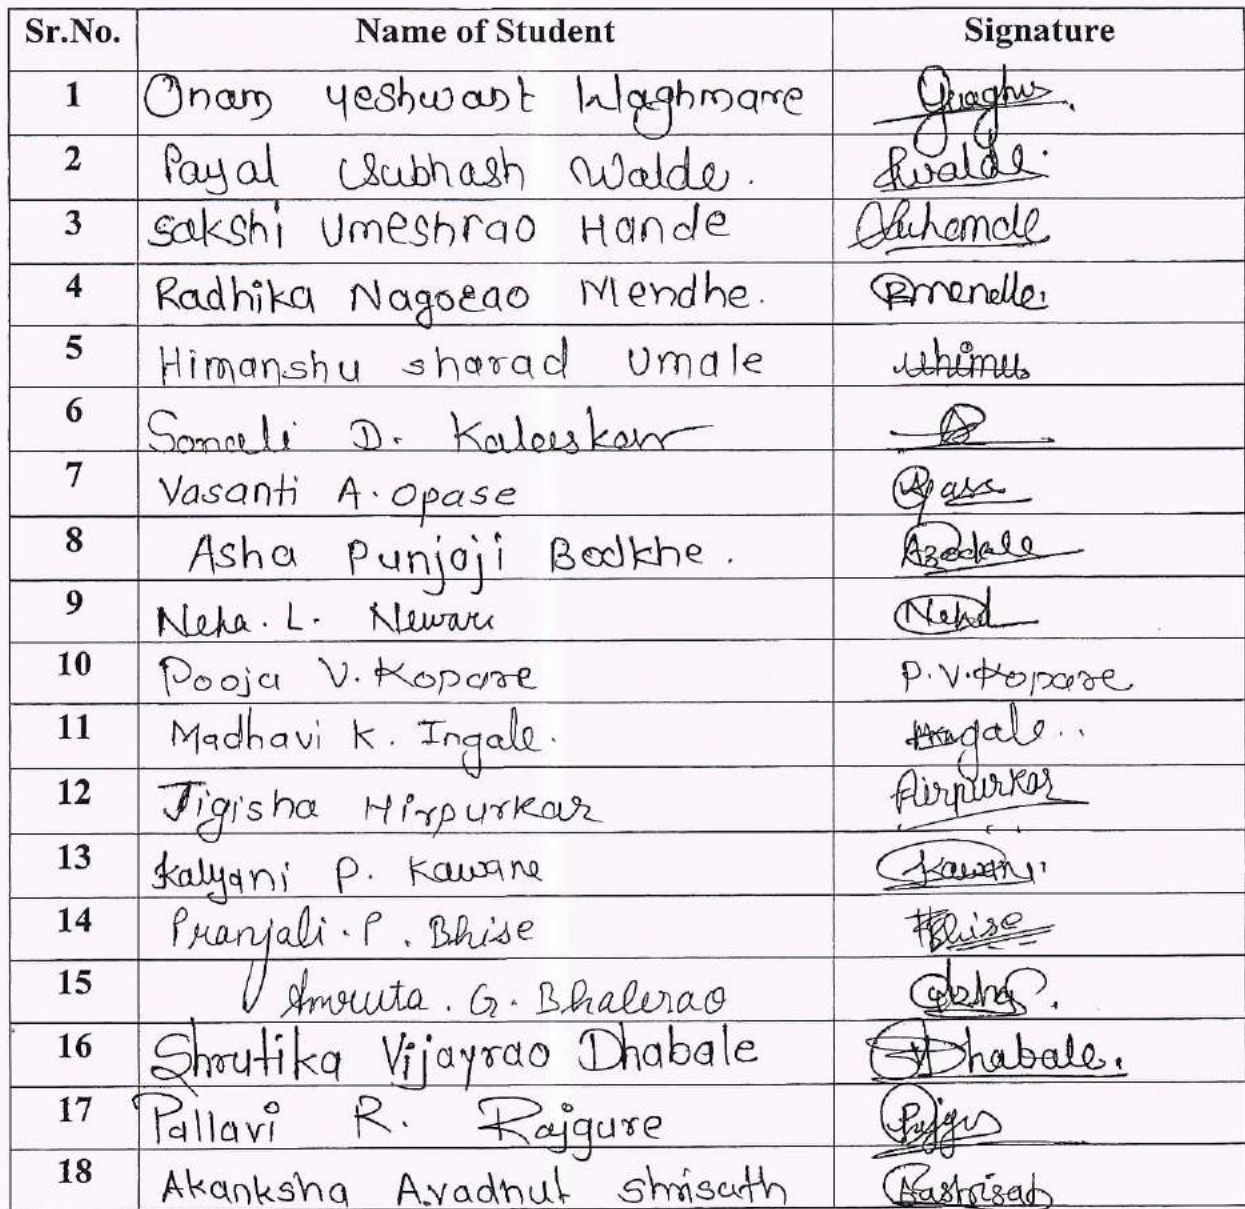 Sr.No. Name of Student Signature
1 Onam Yeshwant Waghmare
2 Payal Subhash Walde. Walde.
3 Sakshi Umeshrao Hande
4 Radhika Nagorao Mendhe.
5 Himanshu sharad Umale
6 Sonali D.
7 Vasanti A. Opase
8 Asha Punjaji Bodkhe.
9 Neha. L. Neware Neha
10 Pooja V. Kopare P. V. Kopare
11 Madhavi K. Ingale.
12 Jigisha Hirpurkar Hirpurkar
13 Kalyani P. Kawane
14 Pranjali. P. Bhise Bhise
15 Amruta. G. Bhalerao
16 Shrutika Vijayrao Dhabale Dhabale.
17 Pallavi R. Rajgure
18 Akanksha Avadhut Shrisath